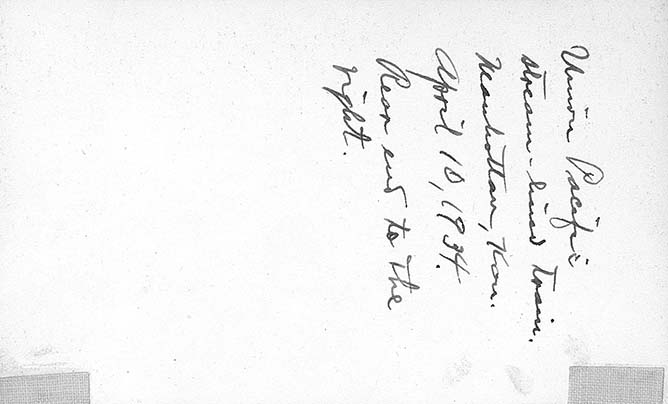 Union Pacific
stream-lined train.
Manhattan, Kan.
April 10, 1934.
Rear end to the
right.